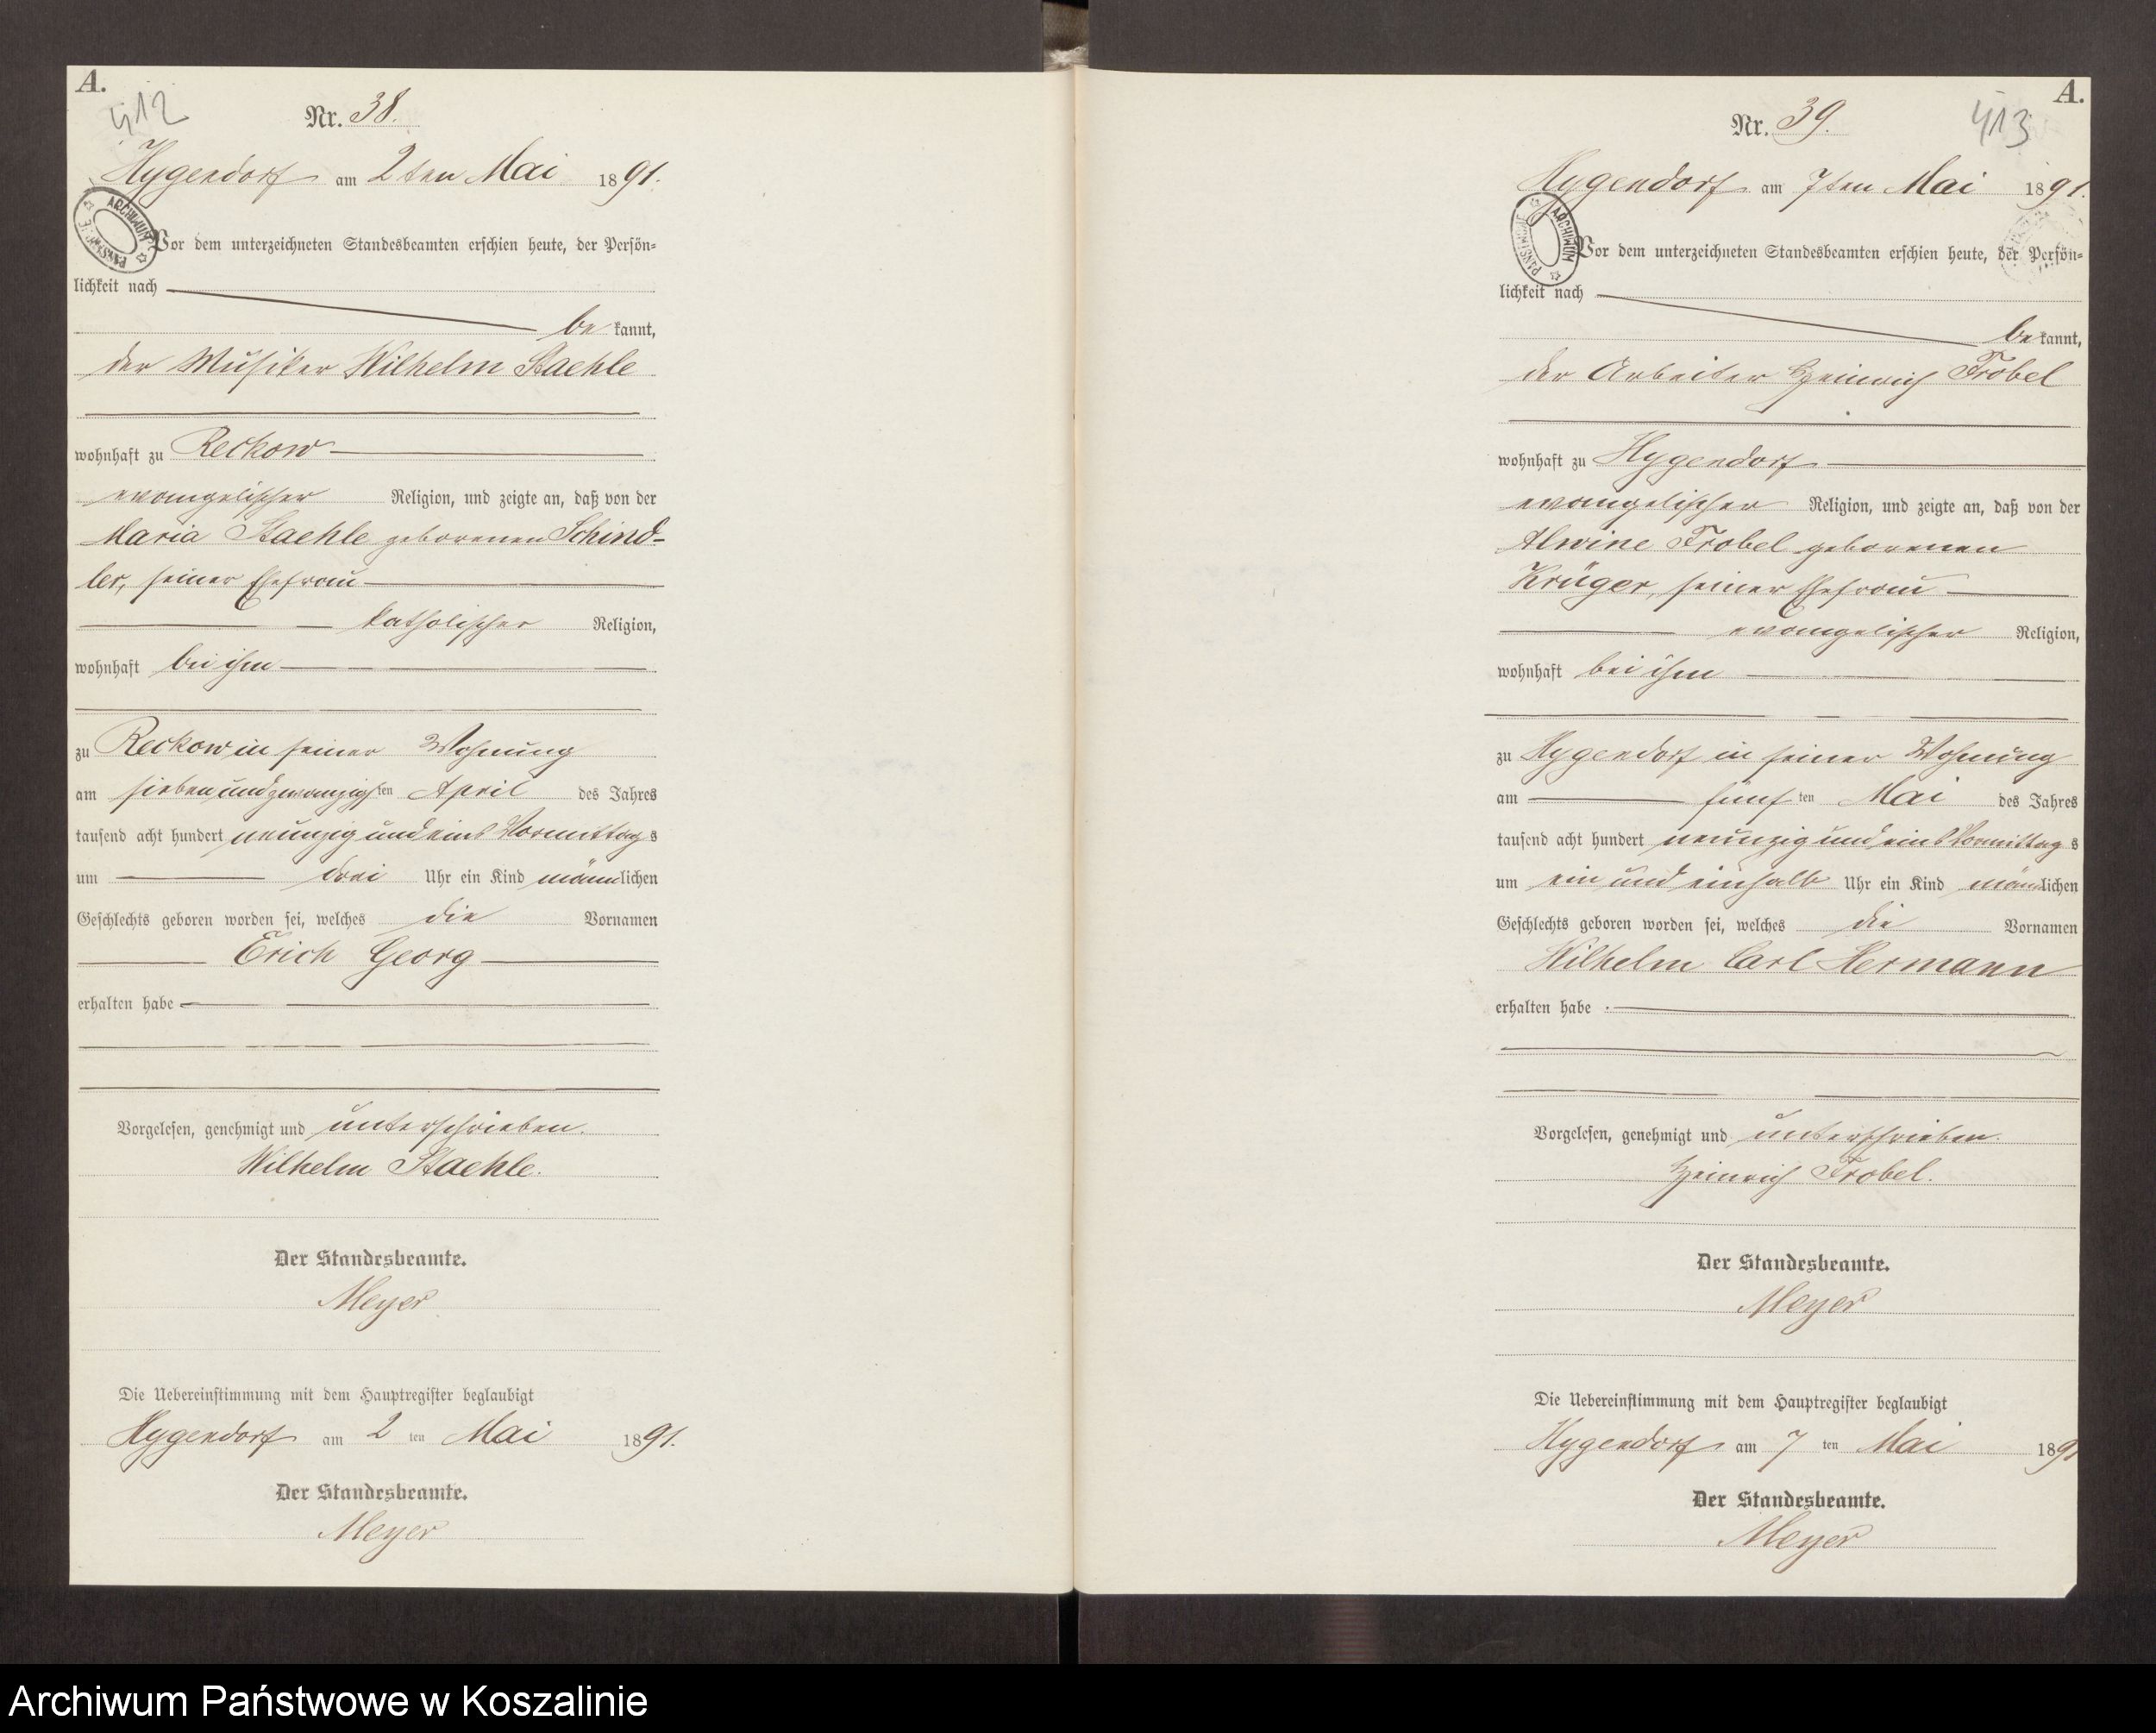 A.
412
Nr. 38.
Hygendorf am 2ten Mai 1891.
ARCHIWUM PAŃSTWOWE
Vor dem unterzeichneten Standesbeamten erschien heute, der Persön=
lichkeit nach
be kannt,
der Musiker Wilhelm Staehle
wohnhaft zu Reckow
evangelischer Religion, und zeigte an, daß von der
Maria Staehle geborenen Schind-
ler, seiner Ehefrau
katholischer Religion,
wohnhaft bei ihm
zu Reckow in seiner Wohnung
am siebenundzwanzigsten April des Jahres
tausend acht hundert neunzig und eins Vormittags
um drei Uhr ein Kind männlichen
Geschlechts geboren worden sei, welches die Vornamen
Erich Georg
erhalten habe
Vorgelesen, genehmigt und unterschrieben.
Wilhelm Staehle.
Der Standesbeamte.
Meyer
Die Uebereinstimmung mit dem Hauptregister beglaubigt
Hygendorf am 2 ten Mai 1891.
Der Standesbeamte.
Meyer
A.
413
Nr. 39.
Hygendorf am 7ten Mai 1891.
ARCHIWUM PAŃSTWOWE
Vor dem unterzeichneten Standesbeamten erschien heute, der Persön=
lichkeit nach
be kannt,
der Arbeiter Heinrich Trobel
wohnhaft zu Hygendorf
evangelischer Religion, und zeigte an, daß von der
Alwine Trobel geborenen
Krüger, seiner Ehefrau
evangelischer Religion,
wohnhaft bei ihm
zu Hygendorf in seiner Wohnung
am fünf ten Mai des Jahres
tausend acht hundert neunzig und eins Vormittags
um ein und einhalb Uhr ein Kind männlichen
Geschlechts geboren worden sei, welches die Vornamen
Wilhelm Carl Hermann
erhalten habe
Vorgelesen, genehmigt und unterschrieben.
Heinrich Trobel.
Der Standesbeamte.
Meyer
Die Uebereinstimmung mit dem Hauptregister beglaubigt
Hygendorf am 7 ten Mai 1891
Der Standesbeamte.
Meyer
Archiwum Państwowe w Koszalinie